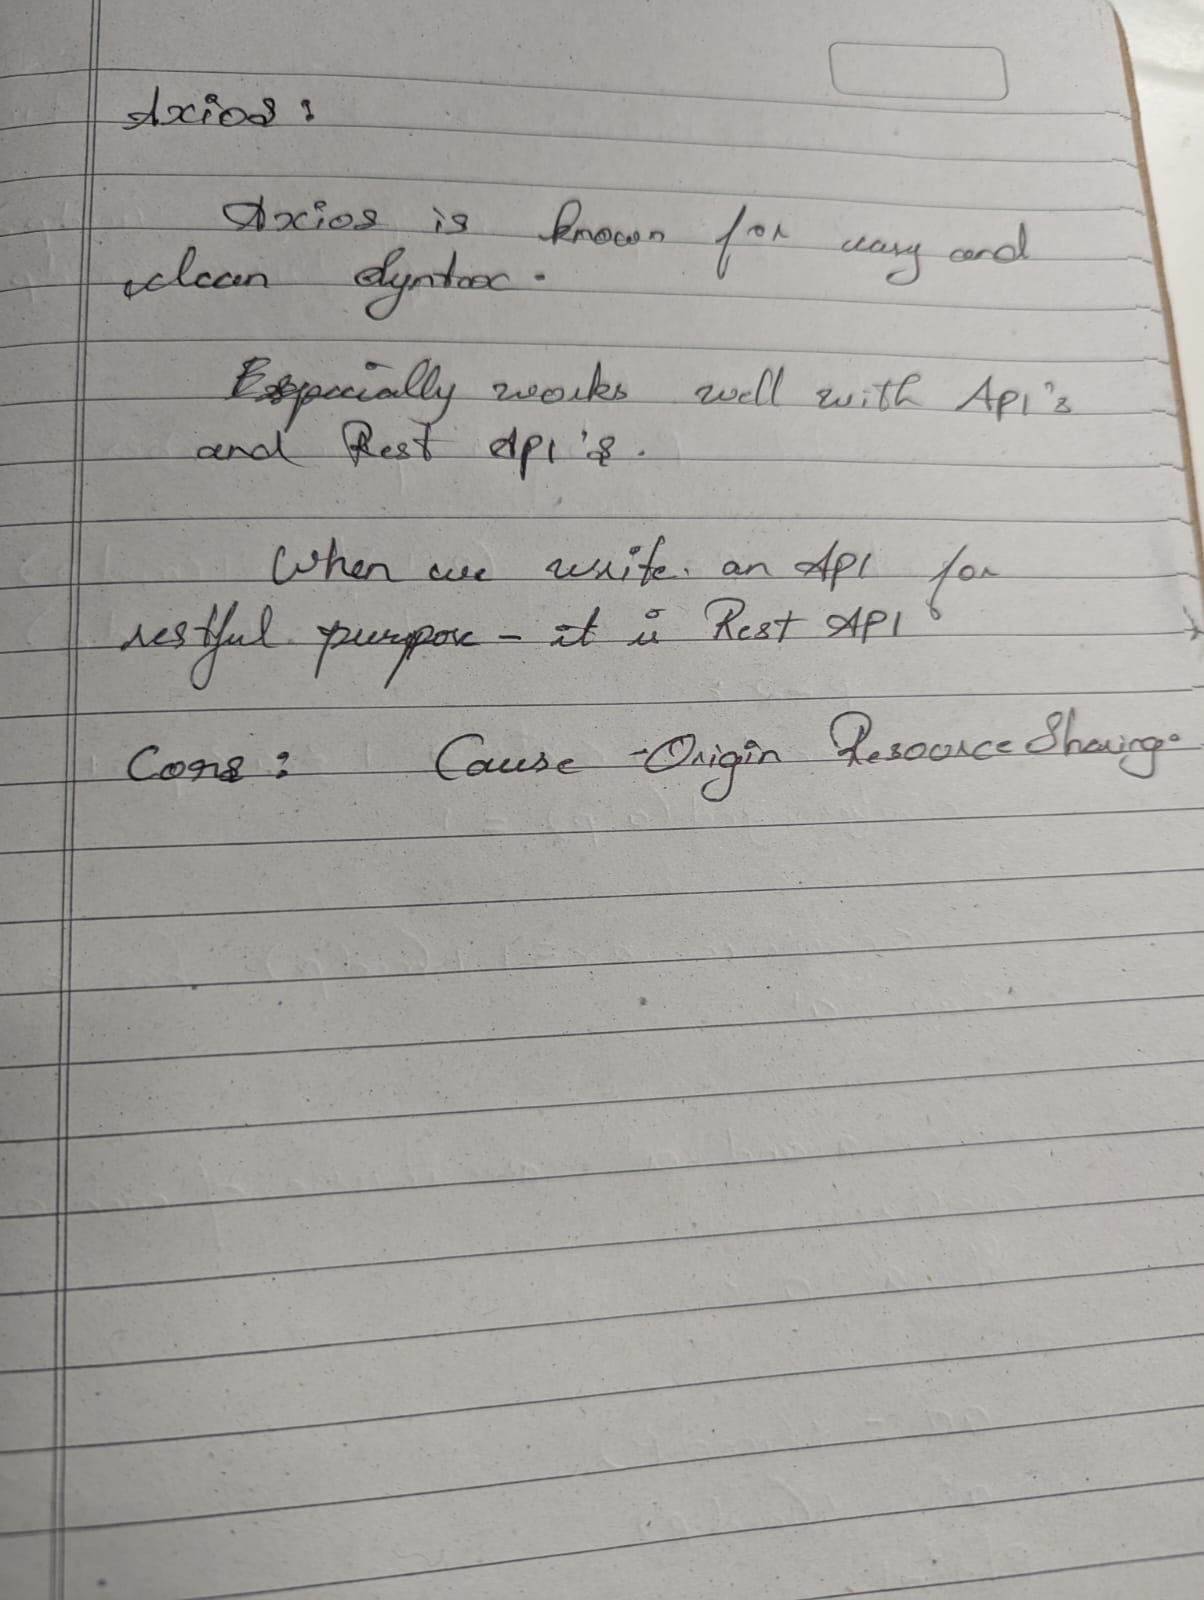 Axios :
Axios is known for easy and
clean Syntax.
Especially works well with API's
and Rest API's.
When we write an API for
restful purpose - it is Rest API
Cons : Cause - Origin Resource Sharing.